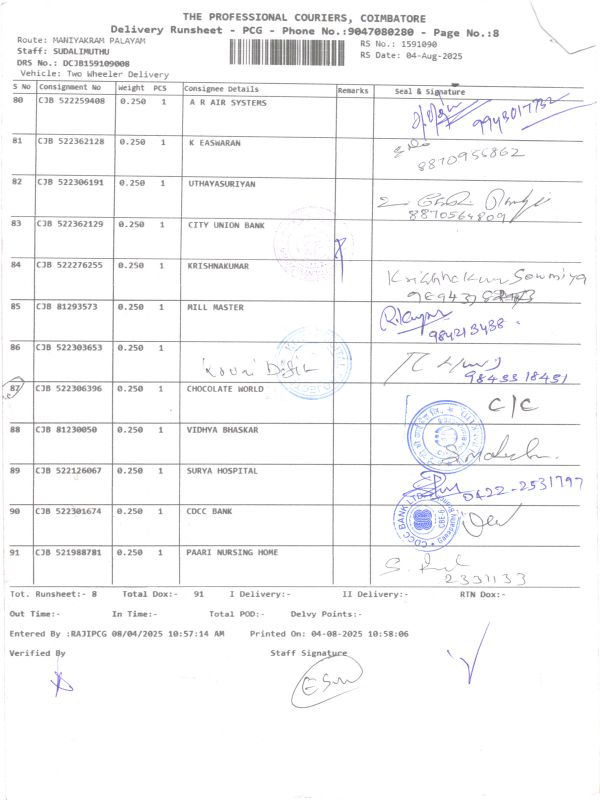 THE PROFESSIONAL COURIERS, COIMBATORE
Delivery Runsheet - PCG - Phone No.:9047080280 - Page No.:8
Route: MANIYAKRAM PALAYAM RS No.: 1591090
Staff: SUDALIMUTHU RS Date: 04-Aug-2025
DRS No.: DCJB159109008
Vehicle: Two Wheeler Delivery
S No Consignment No Weight PCS Consignee Details Remarks Seal & Signature
80 CJB 522259408 0.250 1 A R AIR SYSTEMS 9943017732
81 CJB 522362128 0.250 1 K EASWARAN
8870955862
82 CJB 522306191 0.250 1 UTHAYASURIYAN
8870564809
83 CJB 522362129 0.250 1 CITY UNION BANK
84 CJB 522276255 0.250 1 KRISHNAKUMAR
Krishnakumar Sowmiya
85 CJB 81293573 0.250 1 MILL MASTER
984213438
86 CJB 522303653 0.250 1
9843318451
87 CJB 522306396 0.250 1 CHOCOLATE WORLD C/C
88 CJB 81230050 0.250 1 VIDHYA BHASKAR
89 CJB 522126067 0.250 1 SURYA HOSPITAL
0422-2531797
90 CJB 522301674 0.250 1 CDCC BANK
CDCC BANK LTD
91 CJB 521988781 0.250 1 PAARI NURSING HOME
2331133
Tot. Runsheet:- 8 Total Dox:- 91 I Delivery:- II Delivery:- RTN Dox:-
Out Time:- In Time:- Total POD:- Delvy Points:-
Entered By :RAJIPCG 08/04/2025 10:57:14 AM Printed On: 04-08-2025 10:58:06
Verified By Staff Signature